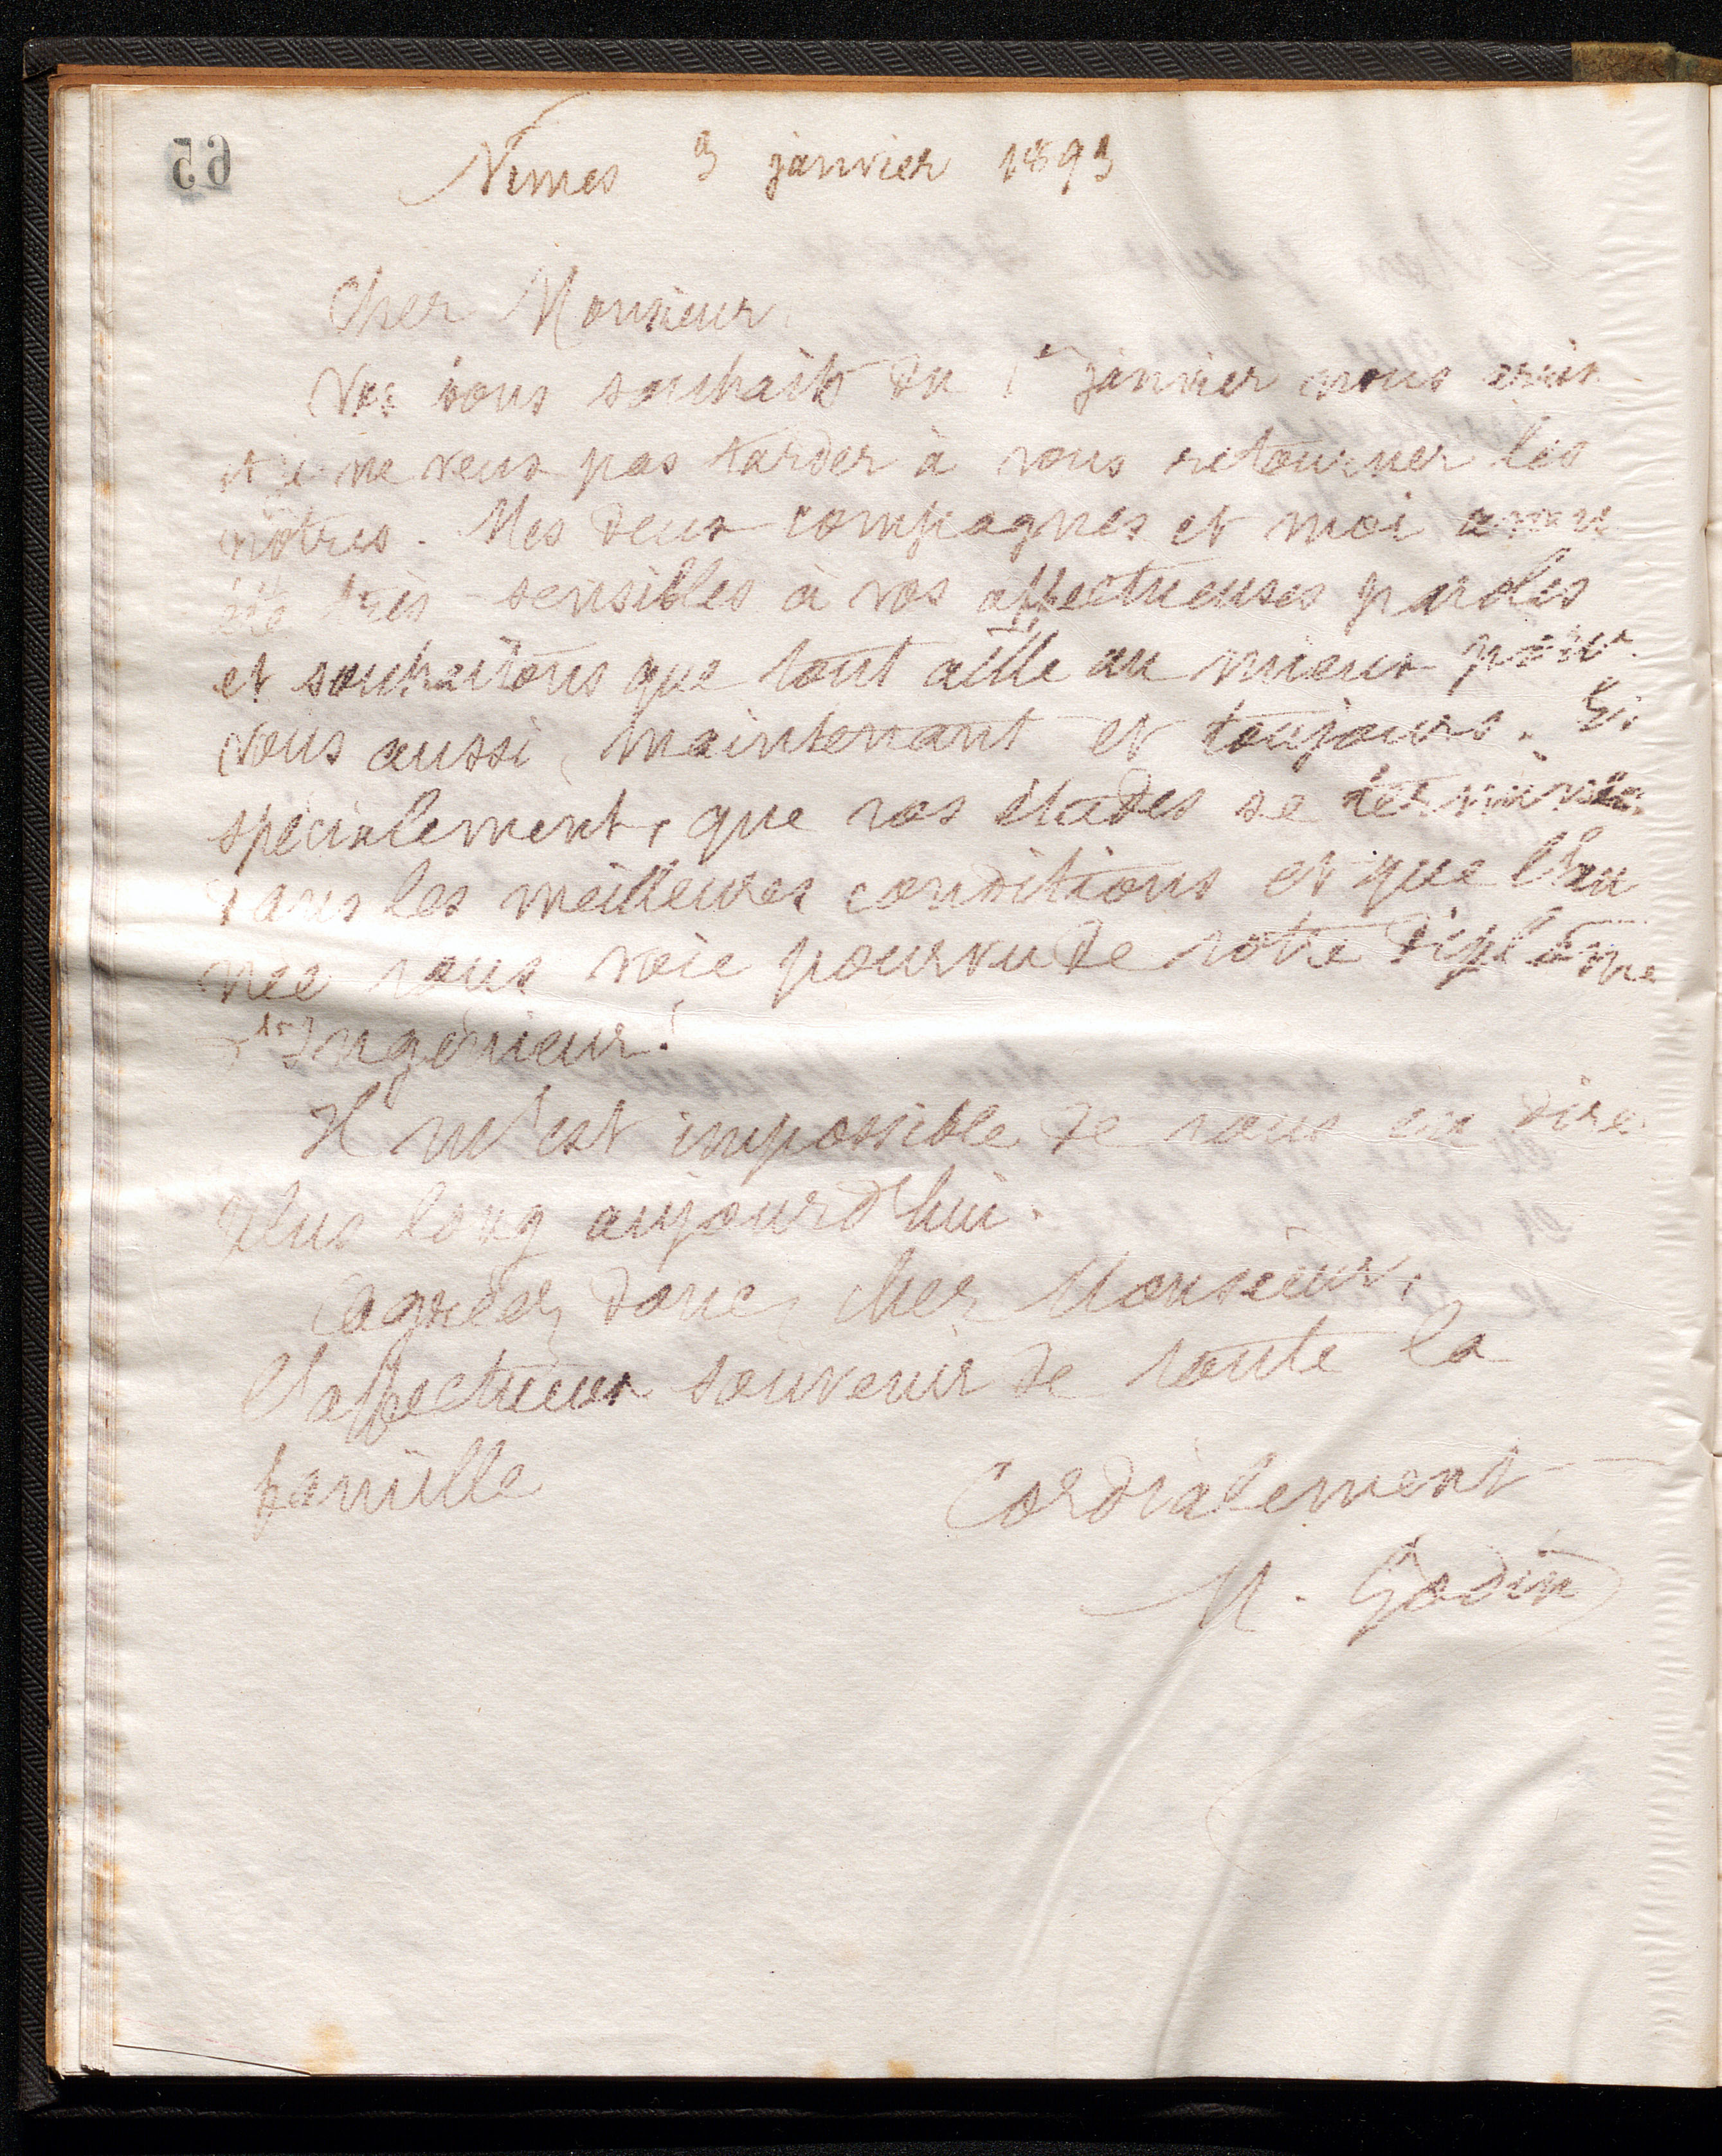 65
Nîmes 3 janvier 1893
Cher Monsieur,
Vos bons souhaits du 1er janvier nous
et je ne veux pas tarder à vous retourner les
nôtres. Mes deux compagnes et moi avons
été très sensibles à vos affectueuses paroles
et souhaitons que tout aille au mieux pour
vous aussi, maintenant et toujours. Et
spécialement, que vos études se terminent
dans les meilleures conditions et que l'an
née vous voie pourvu de votre diplôme
d'Ingénieur!
Il m'est impossible de vous en dire
plus long aujourd'hui.
Agréez donc, cher Monsieur,
l'affectueux souvenir de toute la
famille
Cordialement
M. Godin